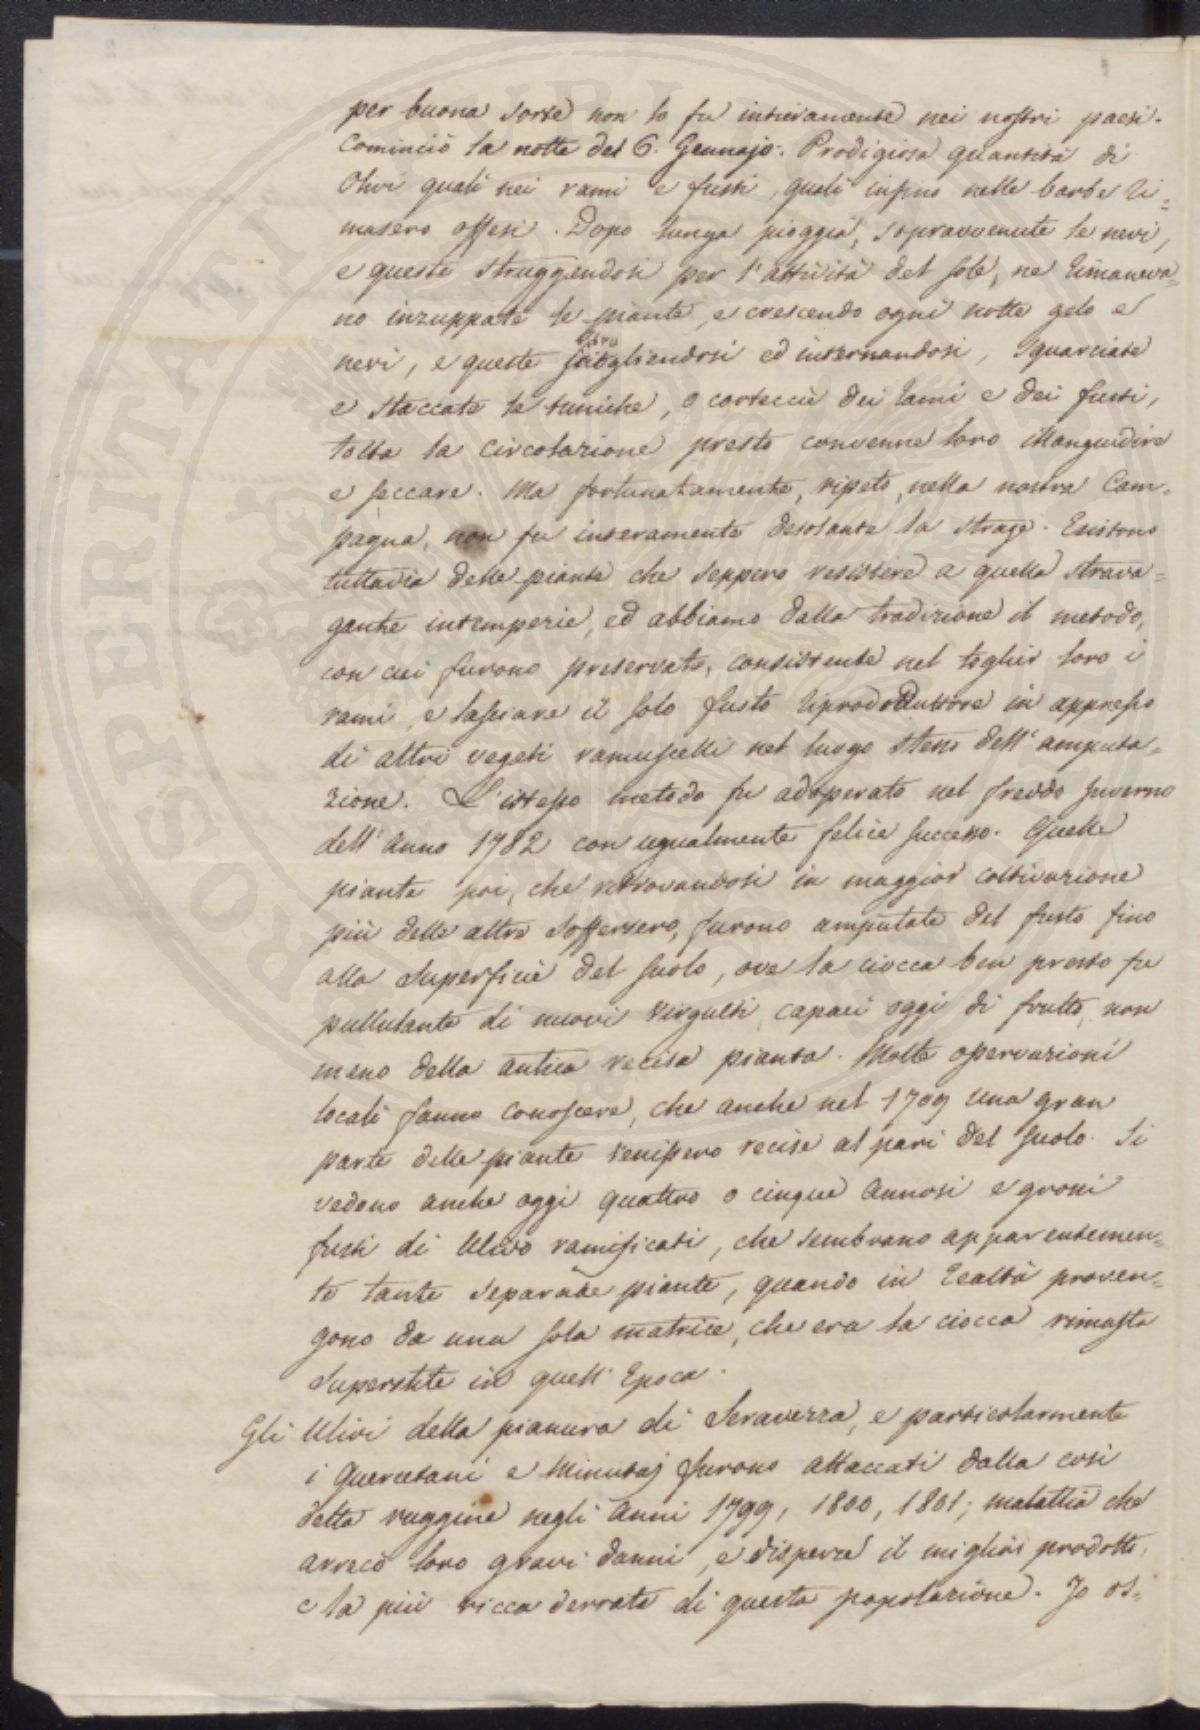 per buona sorte non lo fu intieramente nei nostri paesi.
Cominciò la notte del 6. Gennajo. Prodigiosa quantità di
Olivi quali nei rami e fusti, quali infino nelle barbe ri=
masero offesi. Dopo lunga pioggia, sopravvenute le nevi,
e queste struggendosi per l'attività del sole, ne rimaneva=
no inzuppate le piante, e crescendo ogni notte gelo e
nevi, e queste sciogliendosi ed internandosi, squarciate
e staccate le tuniche, o corteccie dei rami e dei fusti,
tolta la circolazione presto convenne loro illanguidire
e seccare. Ma fortunatamente, ripeto, nella nostra Cam=
pagna, non fu interamente desolante la strage. Esistono
tuttavia delle piante che seppero resistere a quella strava=
gante intemperie, ed abbiamo dalla tradizione il metodo,
con cui furono preservate, consistente nel toglier loro i
rami, e lasciare il solo fusto riproduttore in appresso
di altri vegeti ramuscelli nel luogo stesso dell'amputa=
zione. L'istesso metodo fu adoperato nel freddo Inverno
dell'anno 1782 con ugualmente felice successo. Quelle
piante poi, che ritrovandosi in maggior coltivazione
più delle altre soffersero, furono amputate del fusto fino
alla superficie del suolo, ove la ciocca ben presto fu
pullulante di nuovi virgulti, capaci oggi di frutto non
meno della antica recisa pianta. Molte osservazioni
locali fanno conoscere, che anche nel 1709 una gran
parte delle piante venissero recise al pari del suolo. Si
vedono anche oggi quattro o cinque annosi e grossi
fusti di Ulivo ramificati, che sembrano apparentemen=
te tante separate piante, quando in realtà proven=
gono da una sola matrice, che era la ciocca rimasta
superstite in quell'Epoca.
Gli Ulivi della pianura di Seravezza, e particolarmente
i Quercetani e Minutaj furono attaccati dalla così
detta ruggine negli anni 1799, 1800, 1801; malattia che
arrecò loro gravi danni, e disperse il miglior prodotto,
e la più ricca derrata di questa popolazione. Io os=